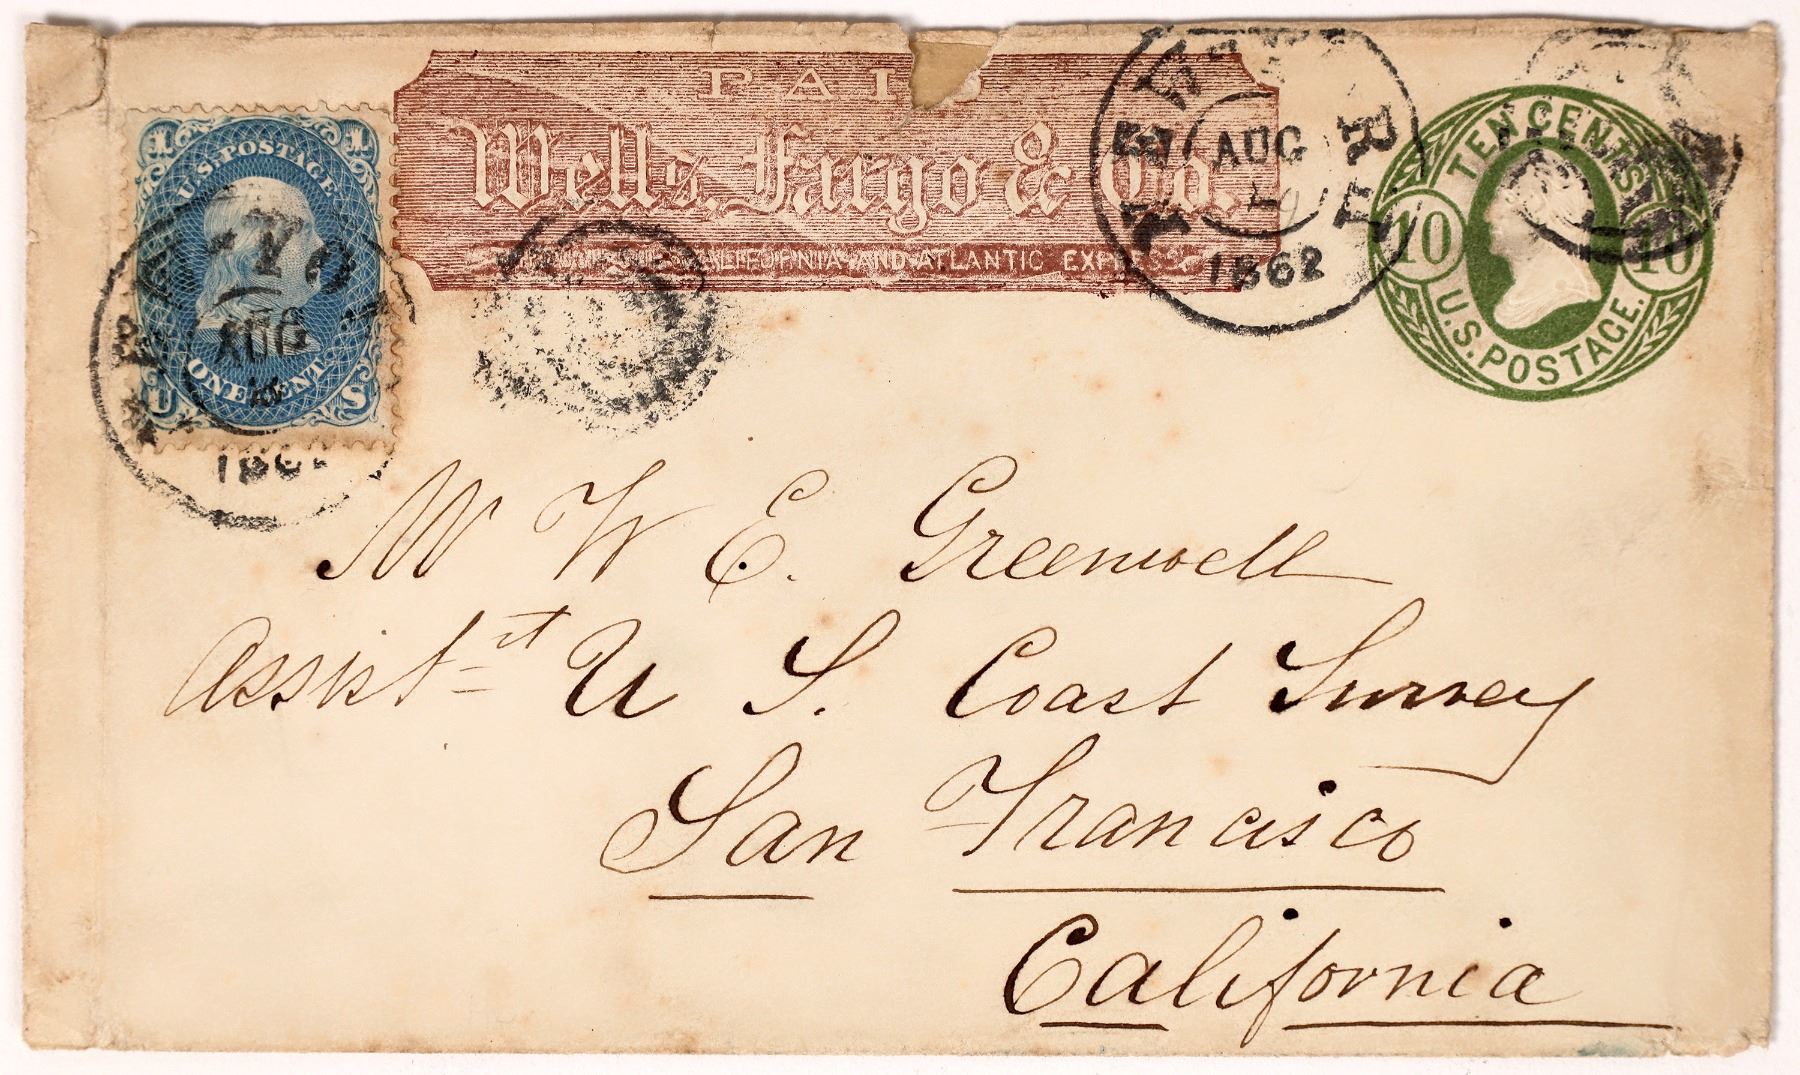 PAID
Wells, Fargo & Co.
CALIFORNIA AND ATLANTIC EXPRESS
1 U.S. POSTAGE 1
ONE CENT
U S
AUG
186
NEW YORK
AUG
1862
TEN CENTS
10 10
U.S. POSTAGE.
Mr W E. Greenwell
Assist=st U S. Coast Survey
San Francisco
California